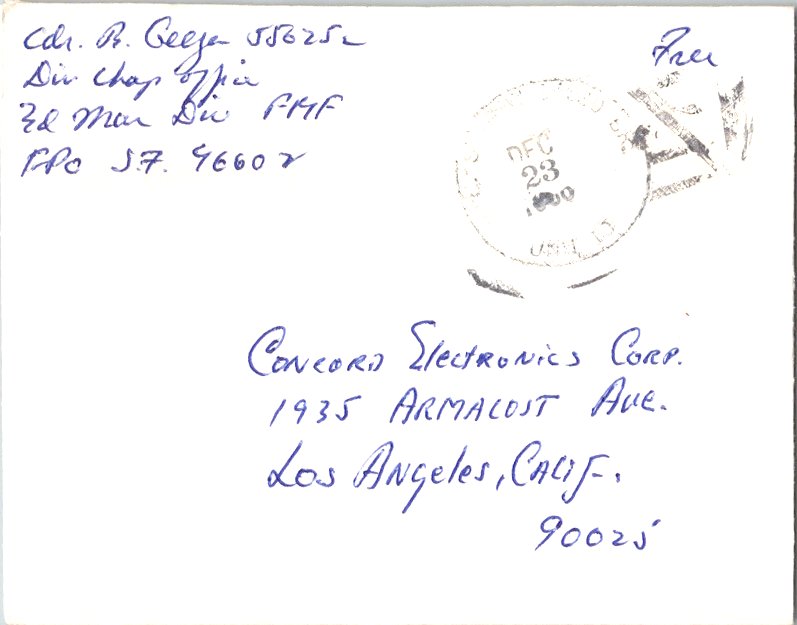 Cdr. R. Geeza 556252
Div Chap office
3d Mar Div FMF
FPO S.F. 96602
Free
DEC
23
UNIT
Concord Electronics Corp.
1935 Armacost Ave.
Los Angeles, Calif.
90025